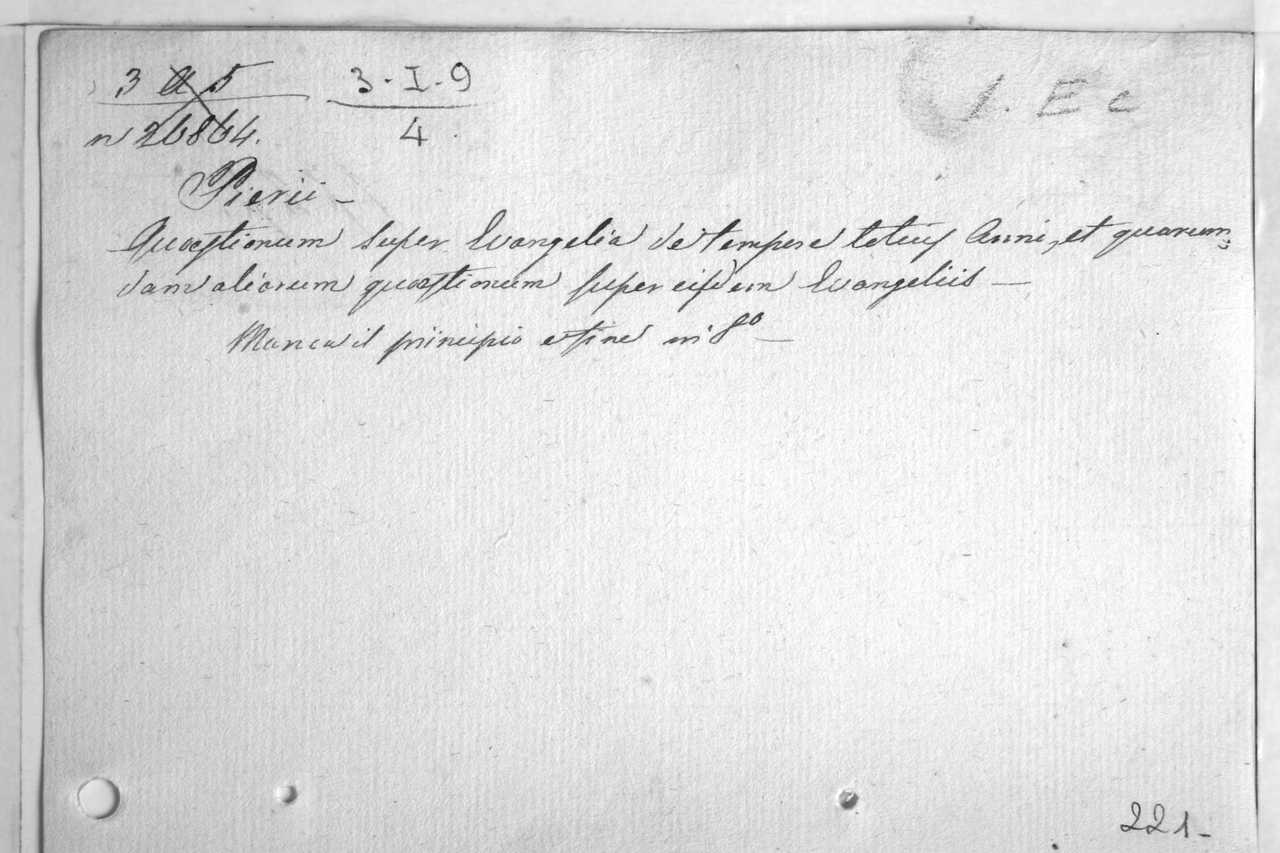 3 a 5 3-I-9 1. E c
n 26864. 4
Pierii -
Quæstionum super Evangelia de tempore totius Anni, et quarum:
dam aliorum quæstionum super eisdem Evangeliis —
Manca il principio e fine in 8º —
221-